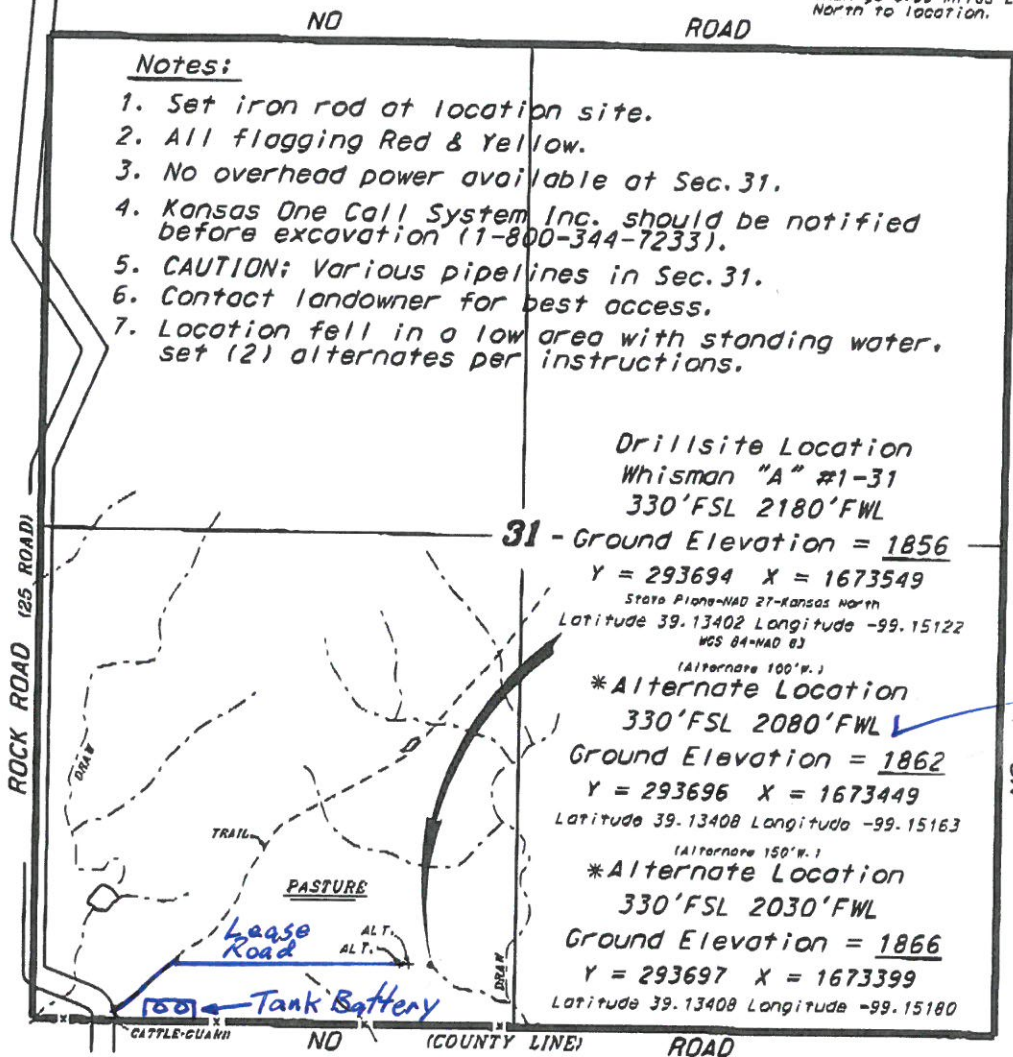 North to location.
NO ROAD
Notes:
1. Set iron rod at location site.
2. All flagging Red & Yellow.
3. No overhead power available at Sec. 31.
4. Kansas One Call System Inc. should be notified
before excavation (1-800-344-7233).
5. CAUTION: Various pipelines in Sec. 31.
6. Contact landowner for best access.
7. Location fell in a low area with standing water,
set (2) alternates per instructions.
Drillsite Location
Whisman "A" #1-31
330'FSL 2180'FWL
31 - Ground Elevation = 1856
Y = 293694 X = 1673549
State Plane-NAD 27-Kansas North
Latitude 39.13402 Longitude -99.15122
WGS 84-NAD 83
(Alternate 100'W.)
*Alternate Location
330'FSL 2080'FWL
Ground Elevation = 1862
Y = 293696 X = 1673449
Latitude 39.13408 Longitude -99.15163
(Alternate 150'W.)
*Alternate Location
330'FSL 2030'FWL
Ground Elevation = 1866
Y = 293697 X = 1673399
Latitude 39.13408 Longitude -99.15180
ROCK ROAD (25 ROAD)
DRAW
TRAIL
PASTURE
Lease
Road
ALT.
ALT.
DRAW
Tank Battery
CATTLE-GUARD
NO (COUNTY LINE) ROAD